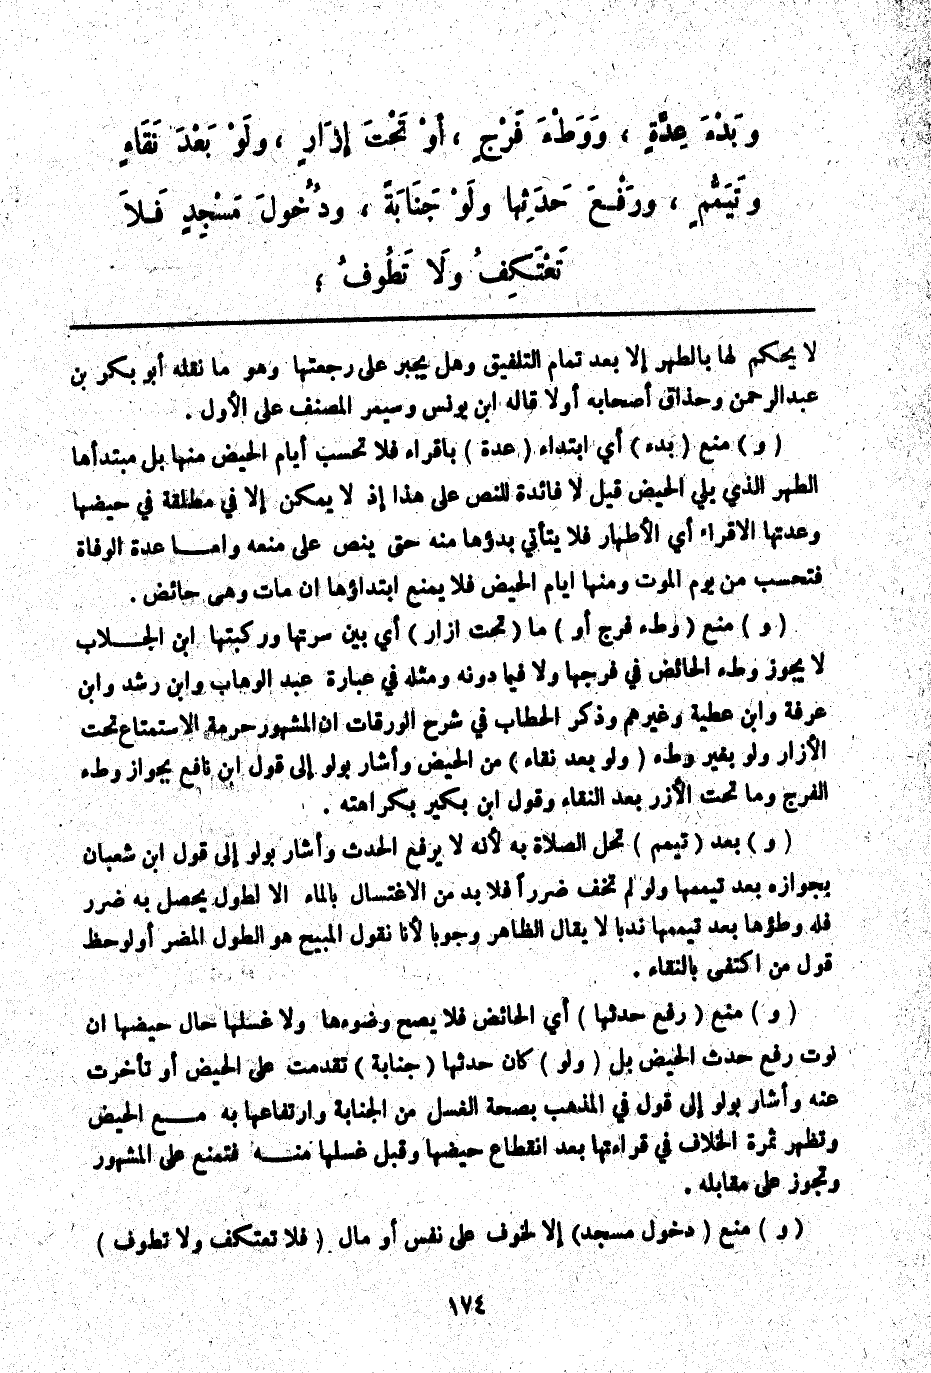 وَبَدْءَ عِدَّةٍ ، وَوَطْءَ فَرْجٍ ، أوْ تَحْتَ إزَارٍ ، ولَوْ بَعْدَ نَقَاءٍ
وتَيَمُّمٍ ، ورَفْعَ حَدَثِها ولَوْ جَنَابَةً ، ودُخُولَ مَسْجِدٍ فَلاَ
تَعْتَكِفُ ولَا تَطُوفُ ؛
لا يحكم لها بالطهر إلا بعد تمام التلفيق وهل يجبر على رجعتها وهو ما نقله أبو بكر بن
عبدالرحمن وحذاق أصحابه أولا قاله ابن يونس وسيمر المصنف على الأول .
( و ) منع ( بدء ) أي ابتداء ( عدة ) باقراء فلا تحسب أيام الحيض منها بل مبتدأها
الطهر الذي يلي الحيض قيل لا فائدة للنص على هذا إذ لا يمكن إلا في مطلقة في حيضها
وعدتها الاقراء أي الأطهار فلا يتأتي بدؤها منه حتى ينص على منعه وامــا عدة الوفاة
فتحسب من يوم الموت ومنها ايام الحيض فلا يمنع ابتداؤها ان مات وهى حائض .
( و ) منع ( وطء فرج أو ) ما ( تحت ازار ) أي بين سرتها وركبتها ابن الجـــلاب
لا يجوز وطء الحائض في فرجها ولا فيما دونه ومثله في عبارة عبد الوهاب وابن رشد وابن
عرفة وابن عطية وغيرهم وذكر الحطاب في شرح الورقات ان المشهور حرمة الاستمتاع تحت
الأزار ولو بغير وطء ( ولو بعد نقاء ) من الحيض وأشار بولو إلى قول ابن نافع بجواز وطء
الفرج وما تحت الأزر بعد النقاء وقول ابن بكير بكراهته .
( و ) بعد ( تيمم ) تحل الصلاة به لأنه لا يرفع الحدث وأشار بولو إلى قول ابن شعبان
بجوازه بعد تيممها ولو لم تخف ضرراً فلا بد من الاغتسال بالماء الا لطول يحصل به ضرر
فله وطؤها بعد تيممها ندبا لا يقال الظاهر وجوبا لأنا نقول المبيح هو الطول المضر أولوحظ
قول من اكتفى بالنقاء .
( و ) منع ( رفع حدثها ) أي الحائض فلا يصح وضوءها ولا غسلها حال حيضها ان
نوت رفع حدث الحيض بل ( ولو ) كان حدثها ( جنابة ) تقدمت على الحيض أو تأخرت
عنه وأشار بولو إلى قول في المذهب بصحة الغسل من الجنابة وارتفاعها به مـــع الحيض
وتظهر ثمرة الخلاف في قراءتها بعد انقطاع حيضها وقبل غسلها منـــه فتمنع على المشهور
وتجوز على مقابله .
( و ) منع ( دخول مسجد) إلا لخوف على نفس أو مال ( فلا تعتكف ولا تطوف )
١٧٤